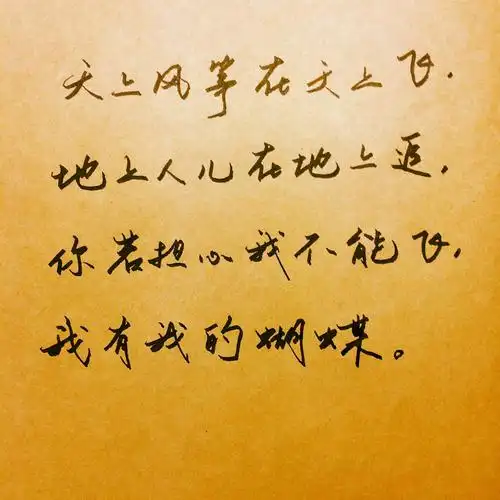 天上风筝在天上飞，
地上人儿在地上追，
你若担心我不能飞，
我有我的蝴蝶。